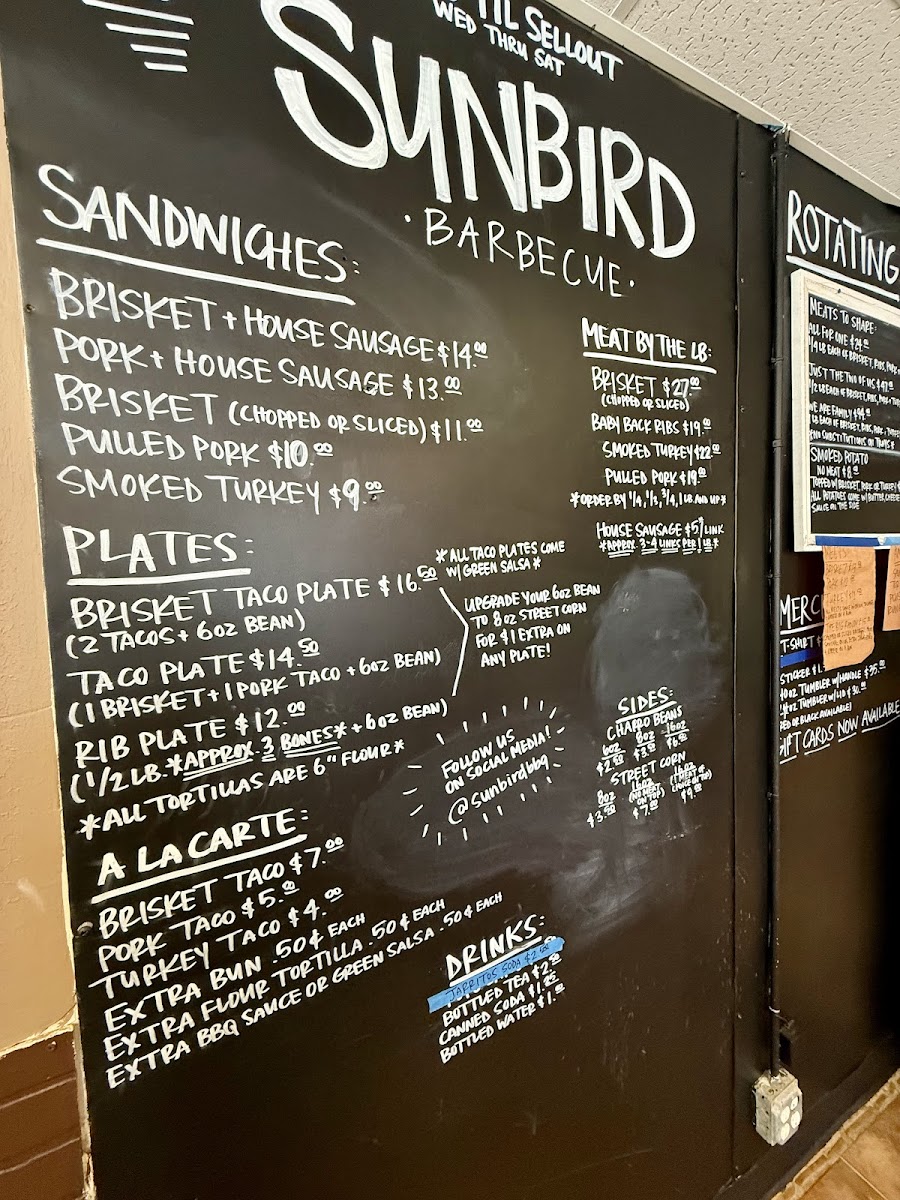 TIL SELLOUT
WED THRU SAT
SUNBIRD
• BARBECUE •
SANDWICHES:
BRISKET + HOUSE SAUSAGE $14.00
PORK + HOUSE SAUSAGE $13.00
BRISKET (CHOPPED OR SLICED) $11.00
PULLED PORK $10.00
SMOKED TURKEY $9.00
PLATES:
BRISKET TACO PLATE $16.50
(2 TACOS + 6OZ BEAN)
TACO PLATE $14.50
(1 BRISKET + 1 PORK TACO + 6OZ BEAN)
RIB PLATE $12.00
(1/2 LB. *APPROX. 3 BONES* + 6OZ BEAN)
*ALL TORTILLAS ARE 6" FLOUR*
*ALL TACO PLATES COME
W/ GREEN SALSA*
UPGRADE YOUR 6OZ BEAN
TO 8OZ STREET CORN
FOR $1 EXTRA ON
ANY PLATE!
A LA CARTE:
BRISKET TACO $7.00
PORK TACO $5.00
TURKEY TACO $4.00
EXTRA BUN .50¢ EACH
EXTRA FLOUR TORTILLA .50¢ EACH
EXTRA BBQ SAUCE OR GREEN SALSA .50¢ EACH
FOLLOW US
ON SOCIAL MEDIA!
@Sunbirdbbq
MEAT BY THE LB:
BRISKET $27.00
(CHOPPED OR SLICED)
BABY BACK RIBS $19.00
SMOKED TURKEY $22.00
PULLED PORK $19.00
HOUSE SAUSAGE $5/LINK
*APPROX. 3-4 LINKS PER 1 LB.*
SIDES:
CHARRO BEANS
6OZ 8OZ 16OZ
STREET CORN
8OZ 16OZ 16OZ
$3.50 $7.00 $9.00
DRINKS:
JARRITOS SODA
BOTTLED TEA
CANNED SODA
BOTTLED WATER
ROTATING
MEATS TO SHARE:
ALL FOR ONE $24.00
1/4 LB EACH OF BRISKET, RIBS, PORK
JUST THE TWO OF US $47.00
1/2 LB EACH OF BRISKET, RIBS, PORK
WE ARE FAMILY $94.00
1 LB EACH OF BRISKET, RIBS, PORK
*NO SUBSTITUTIONS
SMOKED POTATO
NO MEAT $8.00
TOPPED W/ BRISKET, PORK OR TURKEY
ALL POTATOES COME W/ BUTTER, CHEESE
SAUCE ON THE SIDE
MERC
T-SHIRT
STICKER
TUMBLER W/ HANDLE $35.00
TUMBLER W/ LID $30.00
BLACK AVAILABLE)
GIFT CARDS NOW AVAILABLE